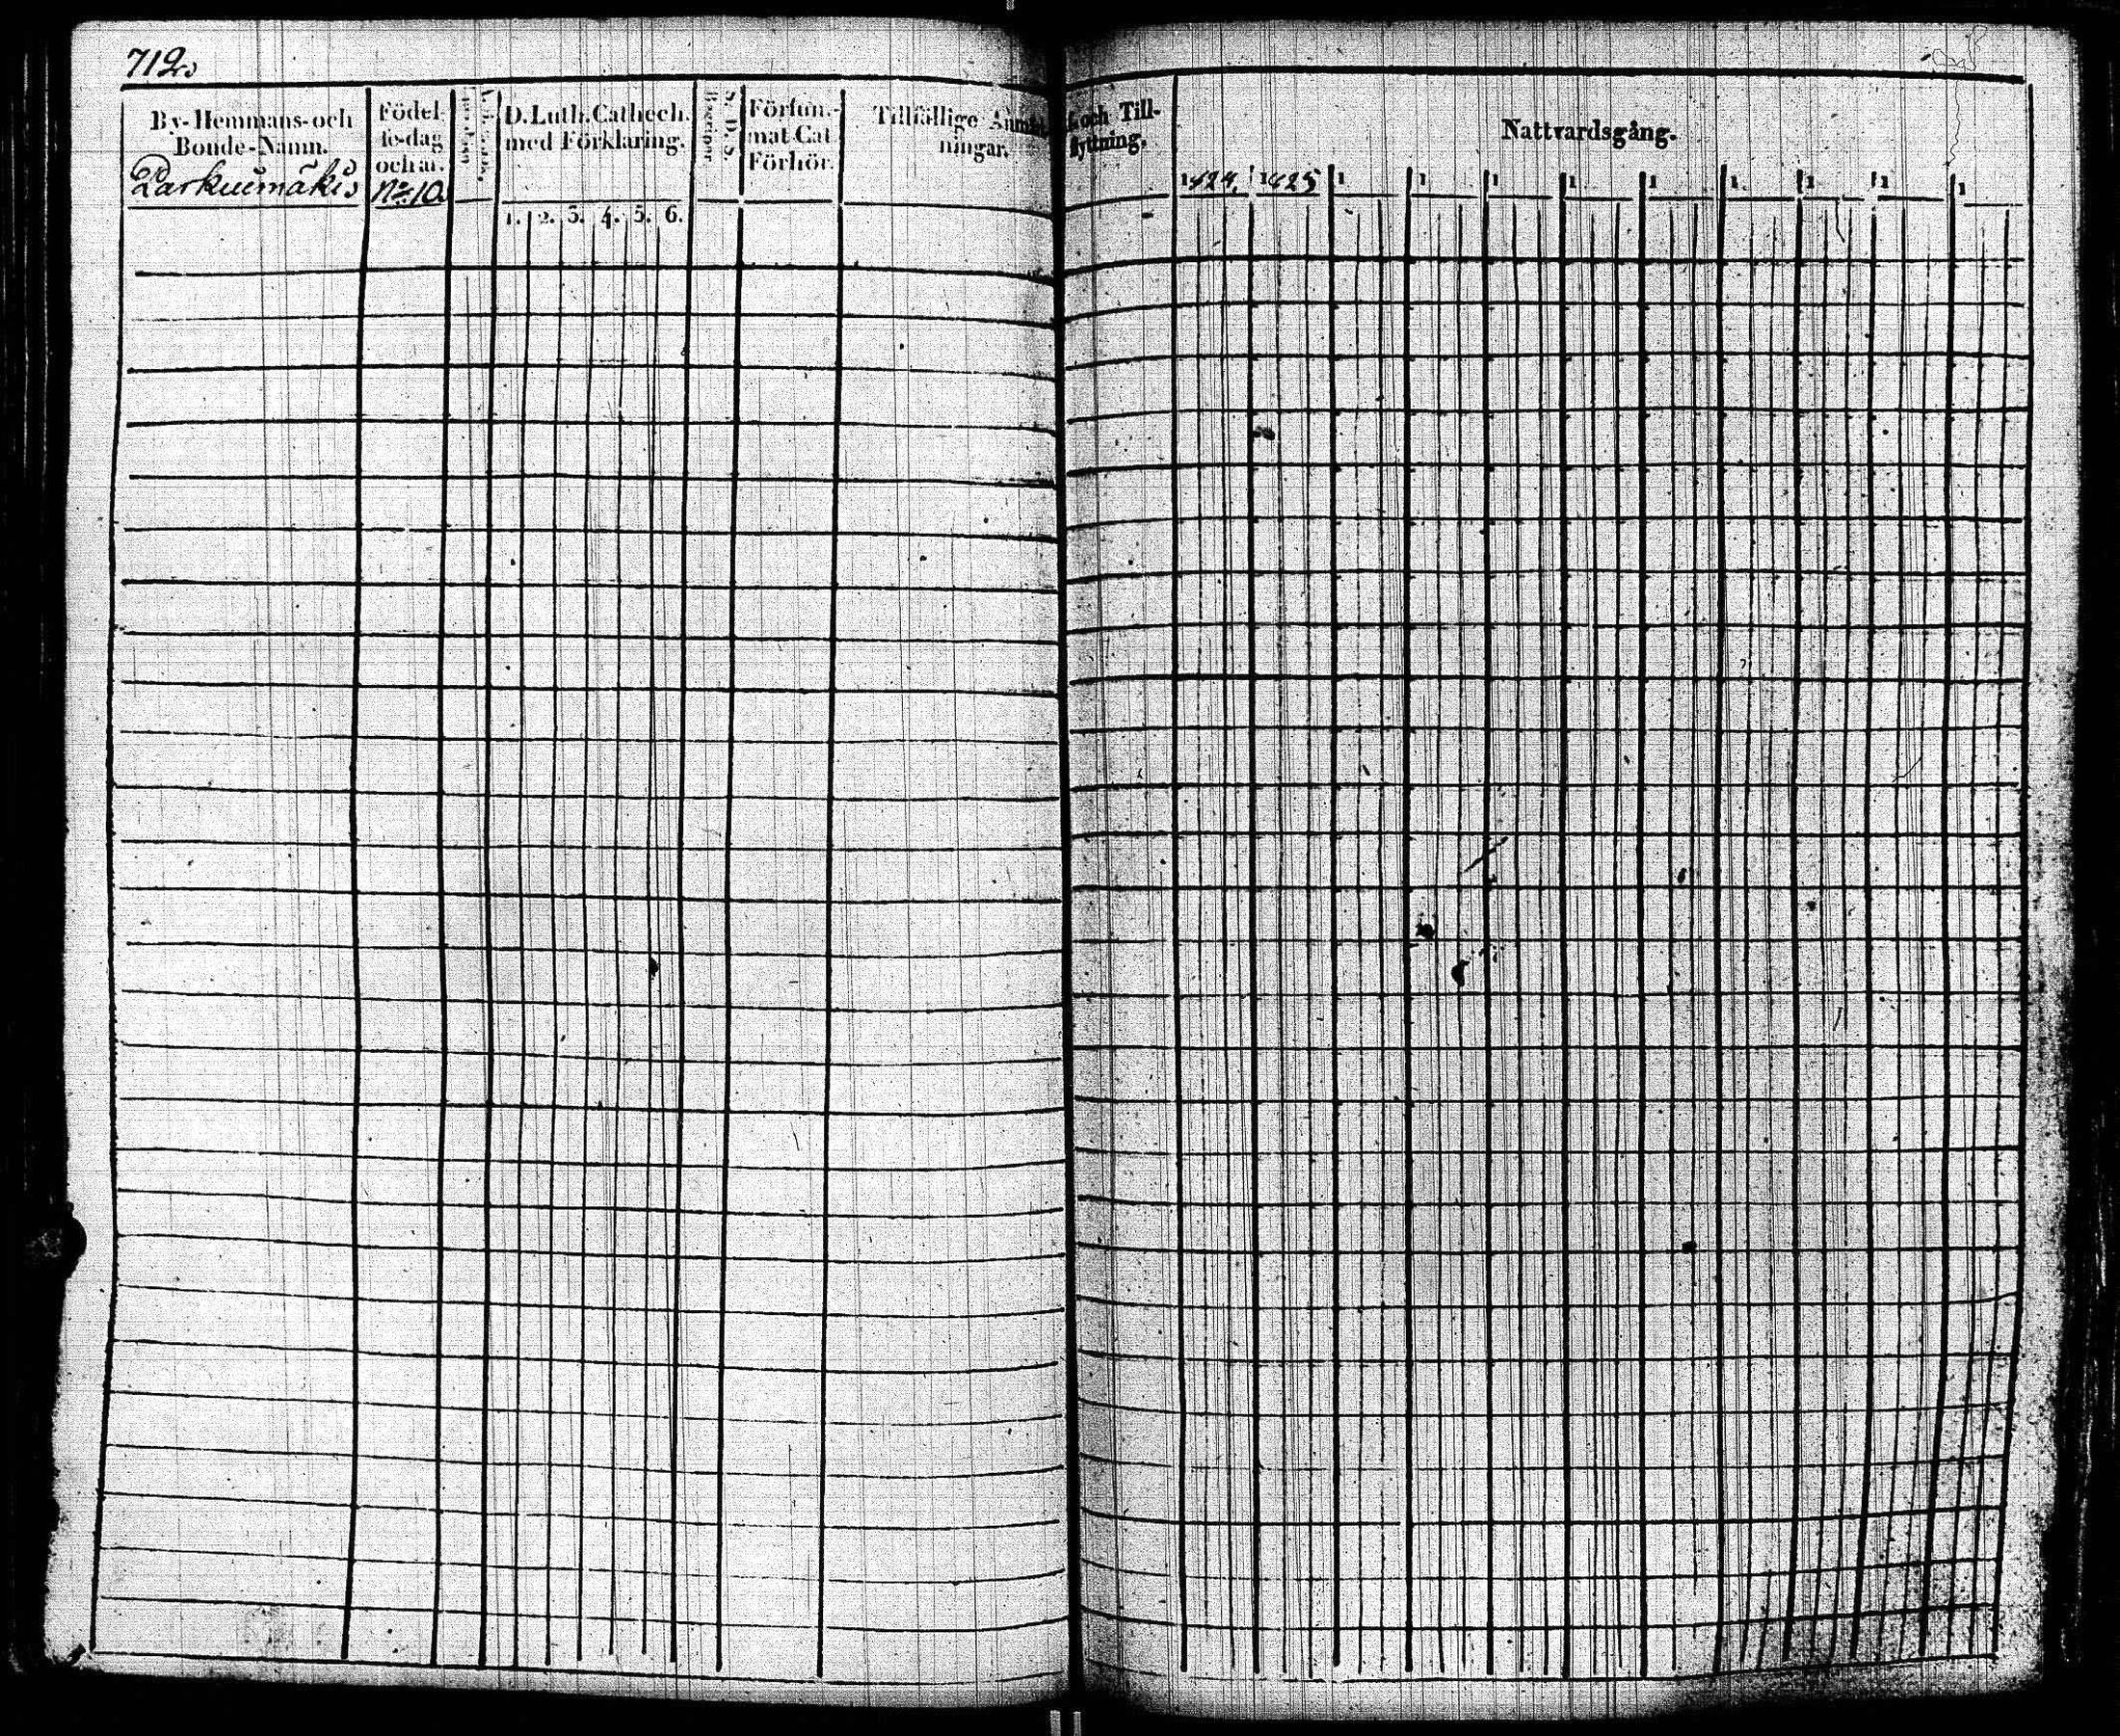 712.
By-Hemmans-och Bonde-Namn.
Parkumäki.
Födel-
se-dag
och år.
No 10.
D. Luth. Cathech. med Förklaring.
1. 2. 3. 4. 5. 6.
Försum-
mat Cat
Förhör.
Tillfällige Anmärk-
ningar.
och Till-
flyttning.
Nattvardsgång.
1824. 1825 1 1 1 1 1 1 1 1 1